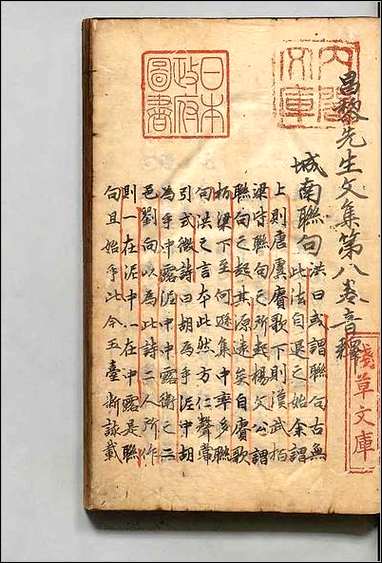 昌黎先生文集第八卷音釋
城南聯句
洪曰或謂聯句古無
此法自退之始余謂
上則唐虞賡歌下則漢武柏
梁皆聯句之所起楊文公謂
聯句之起其源遠矣自賡歌
柏梁下至何遜集中率多聯
句洪之言本此然方仁聲嘗
引式微詩曰胡為乎泥中胡
為乎中露泥中中露衛之二
邑劉向以為此詩二人所作
則一在泥中一在中露是聯
句且始乎此今玉臺新詠載
內閣文庫
日本政府圖書
淺草文庫